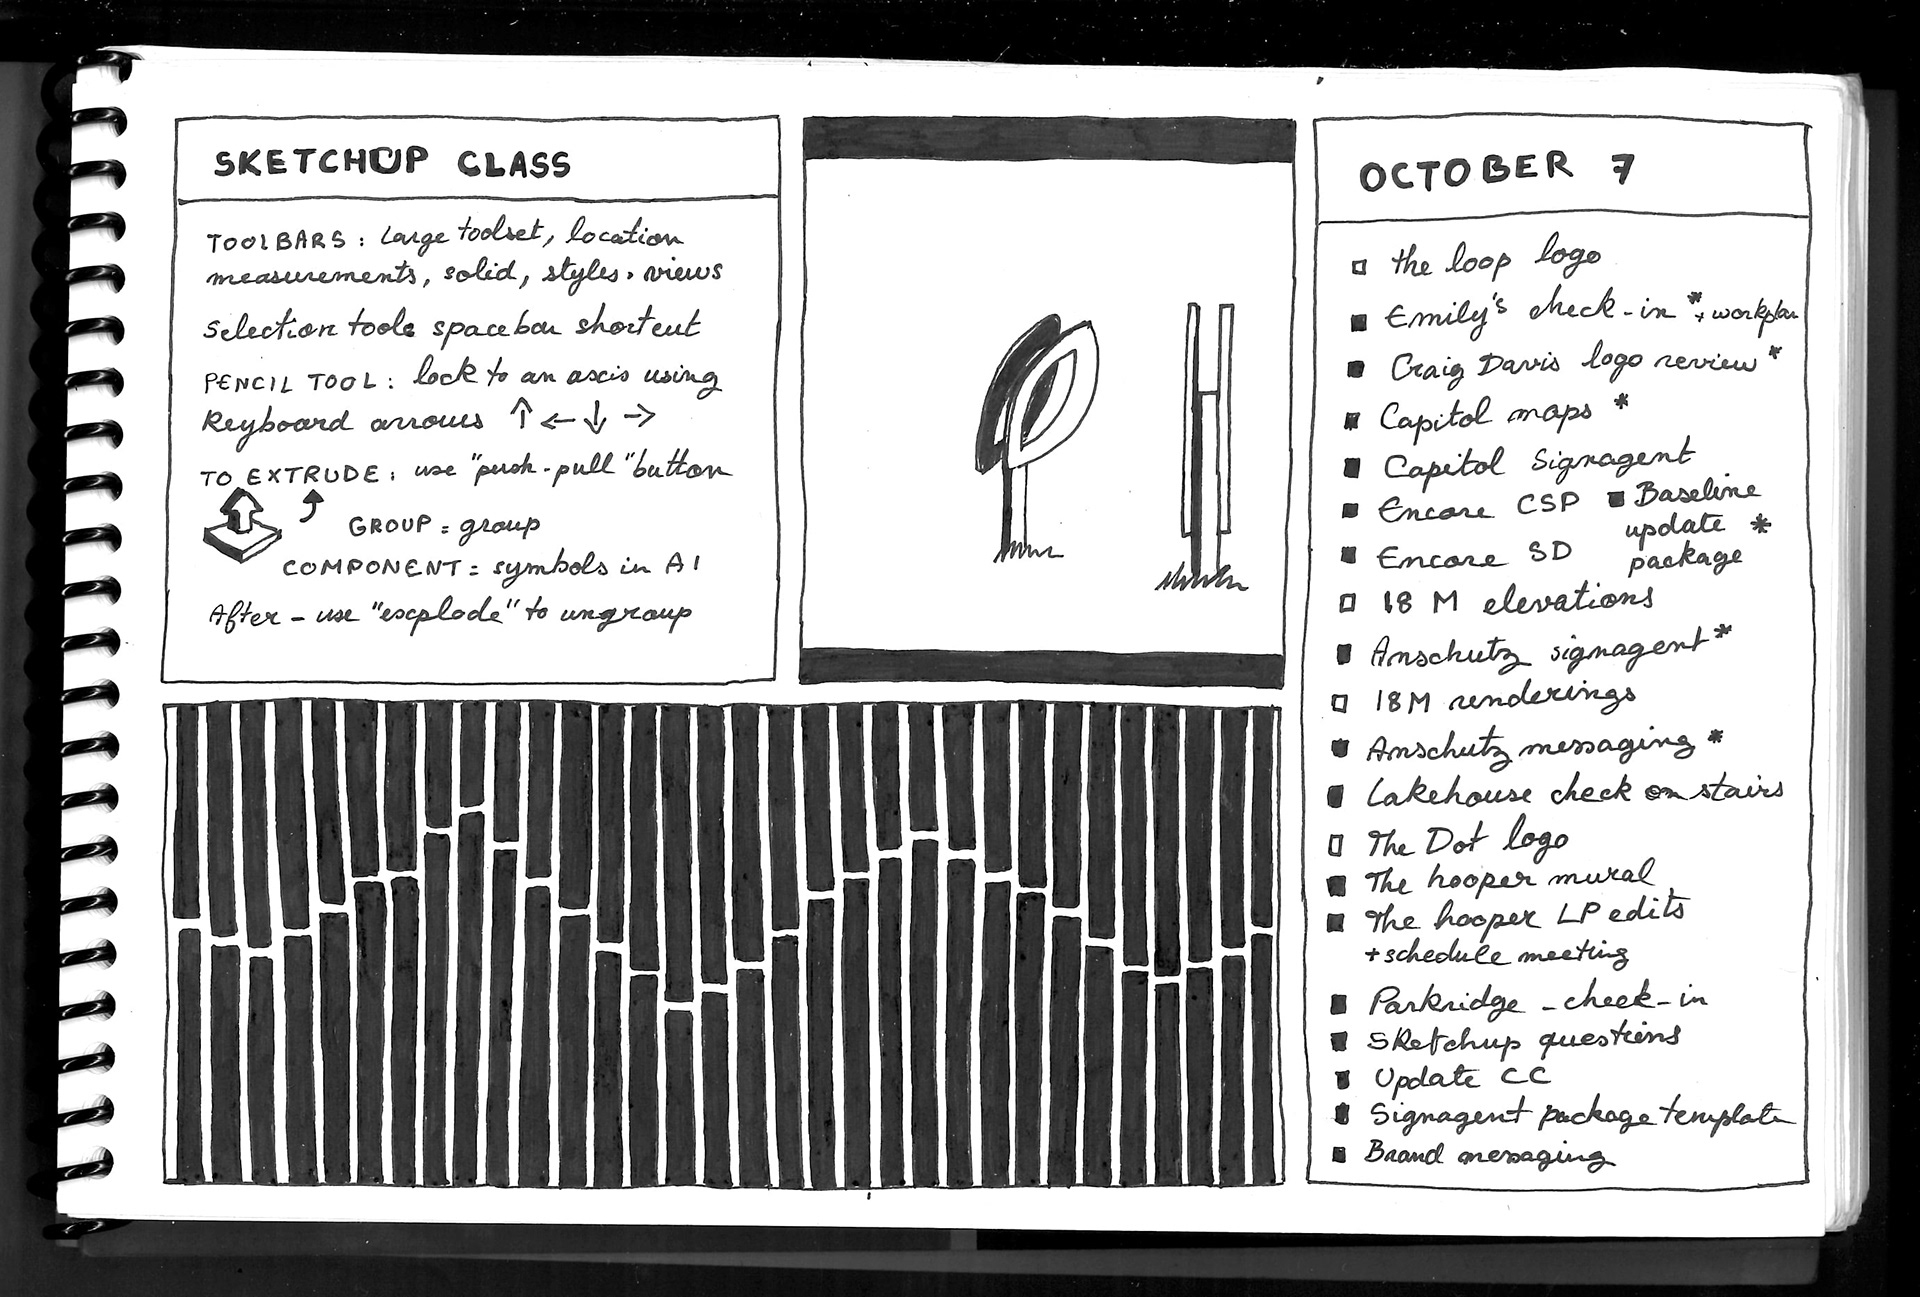 SKETCHUP CLASS
TOOLBARS: Large toolset, location
measurements, solid, styles, views
Selection tools spacebar shortcut
PENCIL TOOL: lock to an axis using
Keyboard arrows ↑ ← ↓ →
TO EXTRUDE: use "push-pull" button
GROUP = group
COMPONENT = symbols in AI
After - use "explode" to ungroup
OCTOBER 7
the loop logo
Emily's check-in * + workplan
Craig Davis logo review *
Capitol maps *
Capitol Signagent
Encore CSP
Baseline
update *
package
Encore SD
18 M elevations
Anschutz signagent *
18M renderings
Anschutz messaging *
Lakehouse check on stairs
The Dot logo
The hooper mural
The hooper LP edits
+ schedule meeting
Parkridge - check-in
Sketchup questions
Update CC
Signagent package template
Brand messaging